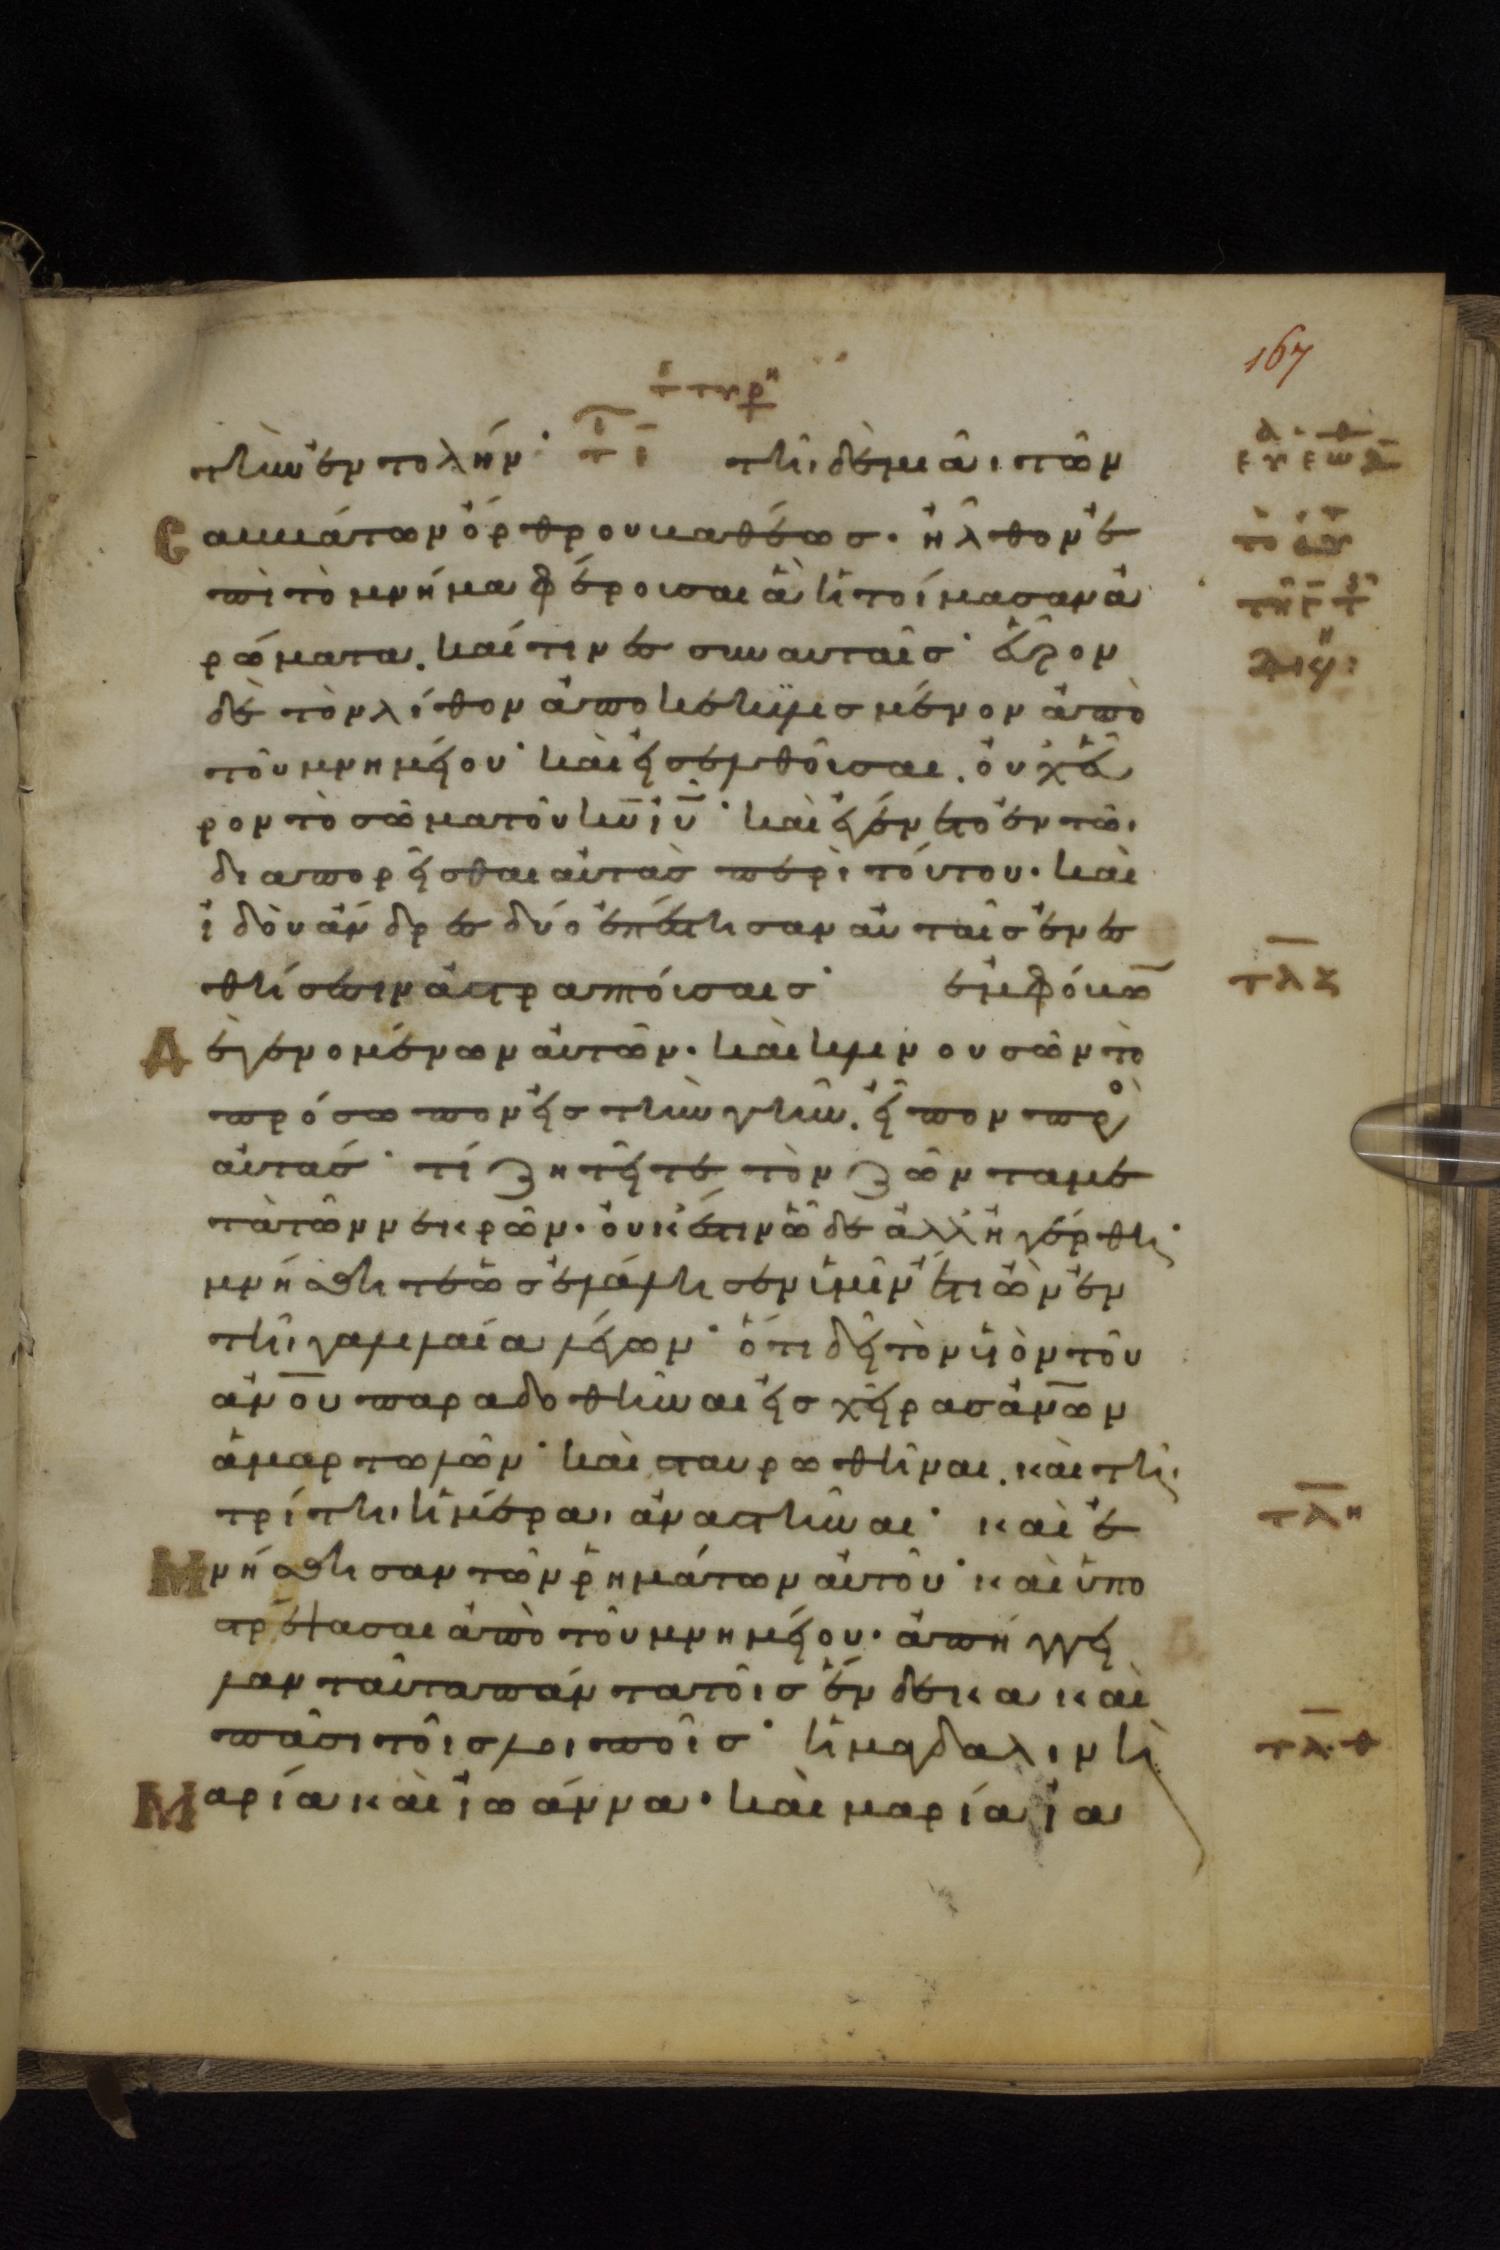 167
τὴν ἐντολήν· τῆι δὲ μιᾶι τῶν
σαββάτων ὄρθρου βαθέως· ἦλθον ἐ
πὶ τὸ μνῆμα φέρουσαι ἃ ἡτοίμασαν ἀ
ρώματα. καί τινες σὺν αὐταῖς· εὗρον
δὲ τὸν λίθον ἀποκεκυλισμένον ἀπὸ
τοῦ μνημείου· καὶ εἰσελθοῦσαι. οὐχ εὗ
ρον τὸ σῶμα τοῦ κυ ιυ· καὶ ἐγένετο ἐν τῶι
διαπορεῖσθαι αὐτὰς περὶ τούτου· καὶ
ἰδοὺ ἄνδρες δύο ἐπέστησαν αὐταῖς ἐν ἐ
σθήσεσιν ἀστραπτούσαις· ἐμφόβω
τλζ
δὲ γενομένων αὐτῶν· καὶ κλινουσῶν τὸ
πρόσωπον εἰς τὴν γῆν. εἶπον πρὸ
αὐτάς· τί ζητεῖτε τὸν ζῶντα με
τὰ τῶν νεκρῶν· οὐκ ἔστιν ὧδε ἀλλ ἠγέρθη·
μνήσθητε ὡς ἐλάλησεν ὑμῖν ἔτι ὢν ἐν
τῆι γαλιλαία λέγων· ὅτι δεῖ τὸν υἱὸν τοῦ
ανου παραδοθῆναι εἰς χεῖρας ανων
ἁμαρτωλῶν· καὶ σταυρωθῆναι. καὶ τῆι
τρίτηι ἡμέραι ἀναστῆναι· καὶ ἐ
τλη
μνήσθησαν τῶν ῥημάτων αὐτοῦ· καὶ ὑπο
στρέψασαι ἀπὸ τοῦ μνημείου· ἀπήγγει
λαν ταῦτα πάντα τοῖς ἕνδεκα καὶ
πᾶσι τοῖς λοιποῖς· ἡ μαγδαλινὴ
τλθ
Μαρία καὶ ἰωάννα· καὶ μαρία ἰα